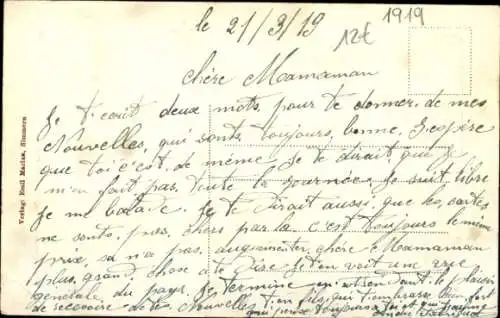 le 21/3/19
1919
12€
chère Mamaman
Je t'ecrit deux mots pour te donner de mes
Nouvelles, qui sont toujours bonne. J'espère
que toi c'est de même. Je te dirait que je
m'en fait pas, toute la journée Je suit libre
Je me balade. Je te Dirait aussi, que les cartes
ne sonts pas chers par la c'est toujours le même
prix, sa n'a pas augmenter, chère Mamaman
plus grand chose a te Dire Je t'en voit une vue
générale du pays Je termine en attendant le plaisir
de recevoir de te Nouvelles ton fils qui t'embrasse bien fort
qui pense toujours a toi et qui
Verlag: Emil Marius, Simmern